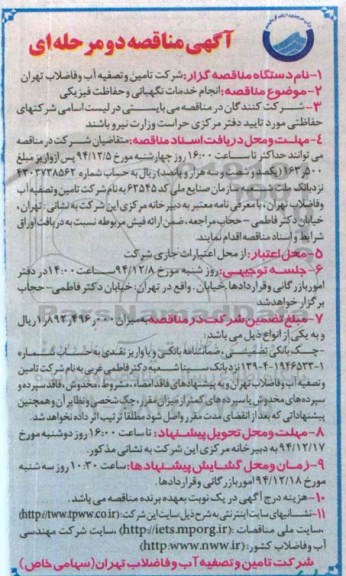 آگهی مناقصه دو مرحله ای
۱-نام دستگاه مناقصه گزار: شرکت تامین و تصفیه آب و فاضلاب تهران
۲-موضوع مناقصه: انجام خدمات نگهبانی و حفاظت فیزیکی
۳- شرکت کنندگان در مناقصه می بایستی در لیست اسامی شرکتهای
حفاظتی مورد تایید دفتر مرکزی حراست وزارت نیرو باشند
۴-مهلت و محل دریافت اسناد مناقصه: متقاضیان شرکت در مناقصه
می توانند حداکثر تا ساعت ۱۶:۰۰ روز چهارشنبه مورخ ۹۴/۱۲/۵ پس از واریز مبلغ
۱۶۳,۵۰۰ (یکصد و شصت و سه هزار و پانصد) ریال به حساب شماره ۴۳۰۳۷۳۸۵۶۲
نزد بانک ملت شعبه سازمان صنایع ملی کد ۶۳۵۴۵ به نام شرکت تامین و تصفیه آب
و فاضلاب تهران، با معرفی نامه معتبر به دبیرخانه مرکزی این شرکت به نشانی: تهران،
خیابان دکتر فاطمی - حجاب مراجعه، ضمن ارائه فیش مربوطه نسبت به دریافت اوراق
شرایط و اسناد مناقصه اقدام نمایند.
۵-محل اعتبار: از محل اعتبارات جاری شرکت
۶- جلسه توجیهی: روز شنبه مورخ ۹۴/۱۲/۸ ساعت ۱۴:۰۰ در دفتر
امور بازرگانی و قراردادها، واقع در تهران: خیابان دکتر فاطمی- حجاب
برگزار خواهد شد
۷- مبلغ تضمین شرکت در مناقصه: به میزان ۱,۸۹۳,۴۹۶,۰۰۰ ریال
و به یکی از انواع ذیل می باشد:
-چک بانکی تضمینی، ضمانتنامه بانکی و یا واریز نقدی به حساب شماره
۱-۱۹۴۶۵۳۳-۴-۱۳۹ نزد بانک سینا شعبه دکتر فاطمی غربی به نام شرکت تامین
و تصفیه آب و فاضلاب تهران و به پیشنهادهای فاقد امضاء، مشروط، مخدوش، فاقد سپرده و
سپرده های مخدوش یا سپرده های کمتر از میزان مقرر، چک شخصی و نظایر آن و همچنین
پیشنهاداتی که بعد از انقضای مدت مقرر واصل شود مطلقا ترتیب اثر داده نخواهد شد.
۸- مهلت و محل تحویل پیشنهاد: تا ساعت ۱۶:۰۰ روز دوشنبه مورخ
۹۴/۱۲/۱۷ به دبیرخانه مرکزی این شرکت به نشانی مذکور.
۹-زمان و محل گشایش پیشنهادها: ساعت ۱۰:۳۰ روز سه شنبه
مورخ ۹۴/۱۲/۱۸ امور بازرگانی و قراردادها.
۱۰-هزینه درج آگهی در یک نوبت بعهده برنده مناقصه می باشد.
۱۱-نشانیهای سایت اینترنتی به شرح ذیل: سایت این شرکت: (http://www.tpww.co.ir)
،سایت ملی مناقصات: (http://iets.mporg.ir)، سایت شرکت مهندسی
آب و فاضلاب کشور: (http:www.nww.ir)
شرکت تامین و تصفیه آب و فاضلاب تهران (سهامی خاص)